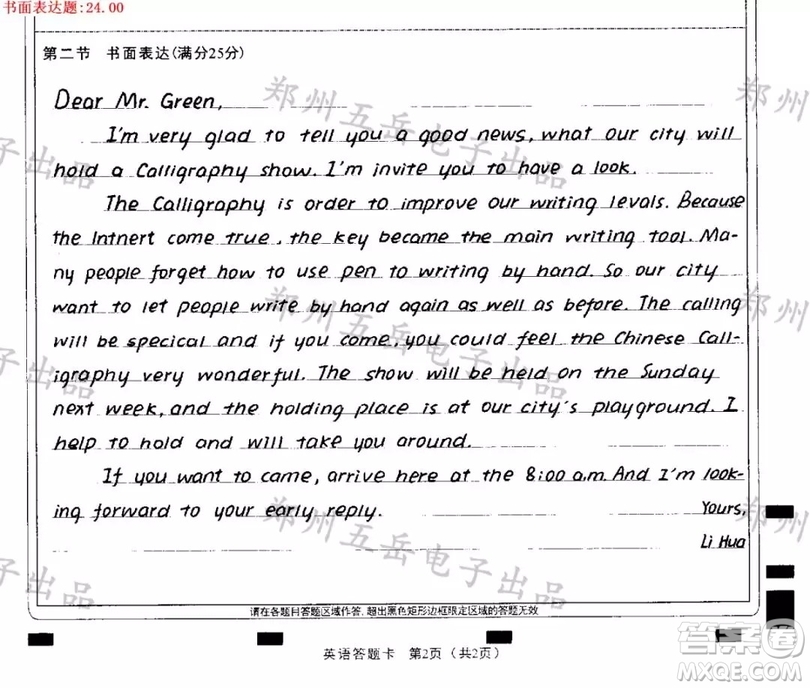 书面表达题:24.00
第二节 书面表达(满分25分)
Dear Mr. Green,
I'm very glad to tell you a good news, what our city will
hold a Calligraphy show. I'm invite you to have a look.
The Calligraphy is order to improve our writing levals. Because
the Intnert come true, the key became the main writing tool. Ma-
ny people forget how to use pen to writing by hand. So our city
want to let people write by hand again as well as before. The calling
will be specical and if you come, you could feel the Chinese Call-
igraphy very wonderful. The show will be held on the Sunday
next week, and the holding place is at our city's playground. I
help to hold and will take you around.
If you want to came, arrive here at the 8:00 a.m. And I'm look-
ing forward to your early reply. Yours,
Li Hua
郑州五岳电子出品
郑州五岳电子出品
郑州五岳电子出品
请在各题目答题区域作答,超出黑色矩形边框限定区域的答题无效
英语答题卡 第2页(共2页)
答案圈
MXQE.COM